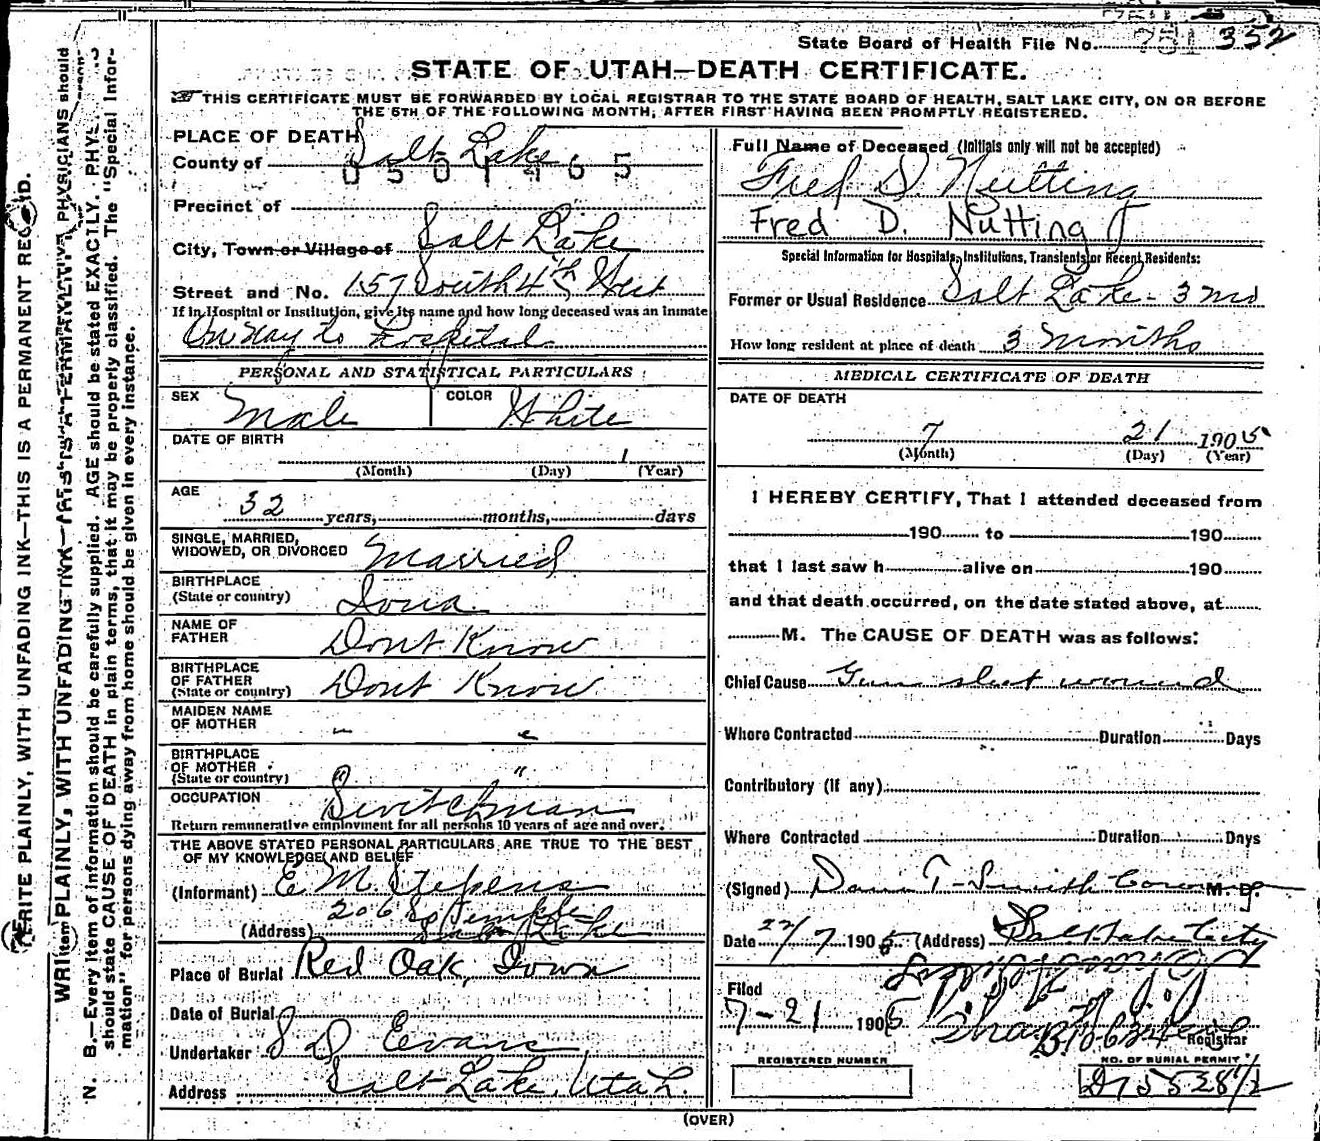 State Board of Health File No. 751 352
STATE OF UTAH—DEATH CERTIFICATE.
THIS CERTIFICATE MUST BE FORWARDED BY LOCAL REGISTRAR TO THE STATE BOARD OF HEALTH, SALT LAKE CITY, ON OR BEFORE
THE 5TH OF THE FOLLOWING MONTH, AFTER FIRST HAVING BEEN PROMPTLY REGISTERED.
PLACE OF DEATH
County of Salt Lake
0501465
Precinct of
City, Town or Village of Salt Lake
Street and No. 157 South 4th West
If in Hospital or Institution, give its name and how long deceased was an inmate
On way to Hospital
PERSONAL AND STATISTICAL PARTICULARS
SEX Male COLOR White
DATE OF BIRTH
(Month) (Day) 1 (Year)
AGE
32 years, months, days
SINGLE, MARRIED,
WIDOWED, OR DIVORCED Married
BIRTHPLACE
(State or country) Iowa
NAME OF
FATHER Dont Know
BIRTHPLACE
OF FATHER
(State or country) Dont Know
MAIDEN NAME
OF MOTHER " "
BIRTHPLACE
OF MOTHER
(State or country) " "
OCCUPATION Switchman
Return remunerative employment for all persons 10 years of age and over.
THE ABOVE STATED PERSONAL PARTICULARS ARE TRUE TO THE BEST
OF MY KNOWLEDGE AND BELIEF
(Informant) E. M. Stephens
206 So Temple
(Address) Salt Lake
Place of Burial Red Oak, Iowa
Date of Burial
Undertaker S D Evans
Address Salt Lake, Utah.
Full Name of Deceased (Initials only will not be accepted)
Fred D. Nutting
Fred D. Nutting
Special Information for Hospitals, Institutions, Transients or Recent Residents:
Former or Usual Residence Salt Lake - 3 mo
How long resident at place of death 3 months
MEDICAL CERTIFICATE OF DEATH
DATE OF DEATH
7 21 1905
(Month) (Day) (Year)
I HEREBY CERTIFY, That I attended deceased from
190 to 190
that I last saw h alive on 190
and that death occurred, on the date stated above, at
M. The CAUSE OF DEATH was as follows:
Chief Cause Gun shot wound
Where Contracted Duration Days
Contributory (if any)
Where Contracted Duration Days
(Signed) Dana T. Smith Coroner M. D.
Date 22/7 1905 (Address) Salt Lake City
Filed
7-21 1905
Registrar
REGISTERED NUMBER
NO. OF BURIAL PERMIT
D75528 1/2
(OVER)
WRITE PLAINLY, WITH UNFADING INK—THIS IS A PERMANENT RECORD.
N. B.—Every item of information should be carefully supplied. AGE should be stated EXACTLY. PHYSICIANS should
should state CAUSE OF DEATH in plain terms, that it may be properly classified. The "Special Infor-
mation" for persons dying away from home should be given in every instance.